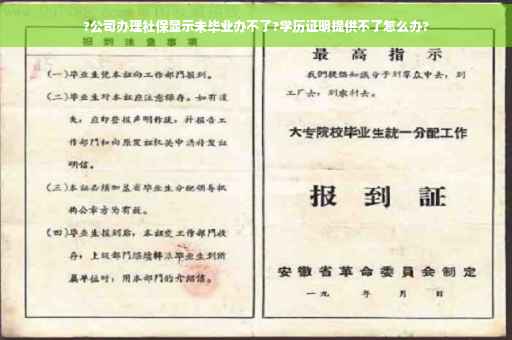 ?公司办理社保显示未毕业办不了?学历证明提供不了怎么办?
报到注意事项
(一)毕业生凭本证向工作部门报到。
(二)毕业生对本证应注意保存。如有遗
失，应即登报声明作废，并报告工
作部门和向原发证机关申请补发证
明信。
(三)本证必须加盖省毕业生分配领导机
构公章方为有效。
(四)毕业生报到后，本证交工作部门收
存；上级部门继续转派毕业生到所
属单位时，用本部门的介绍信。
最高指示
我们提倡知识分子到群众中去，到
工厂去，到农村去。
大专院校毕业生统一分配工作
报到证
安徽省革命委员会制定
一九 年 月 日